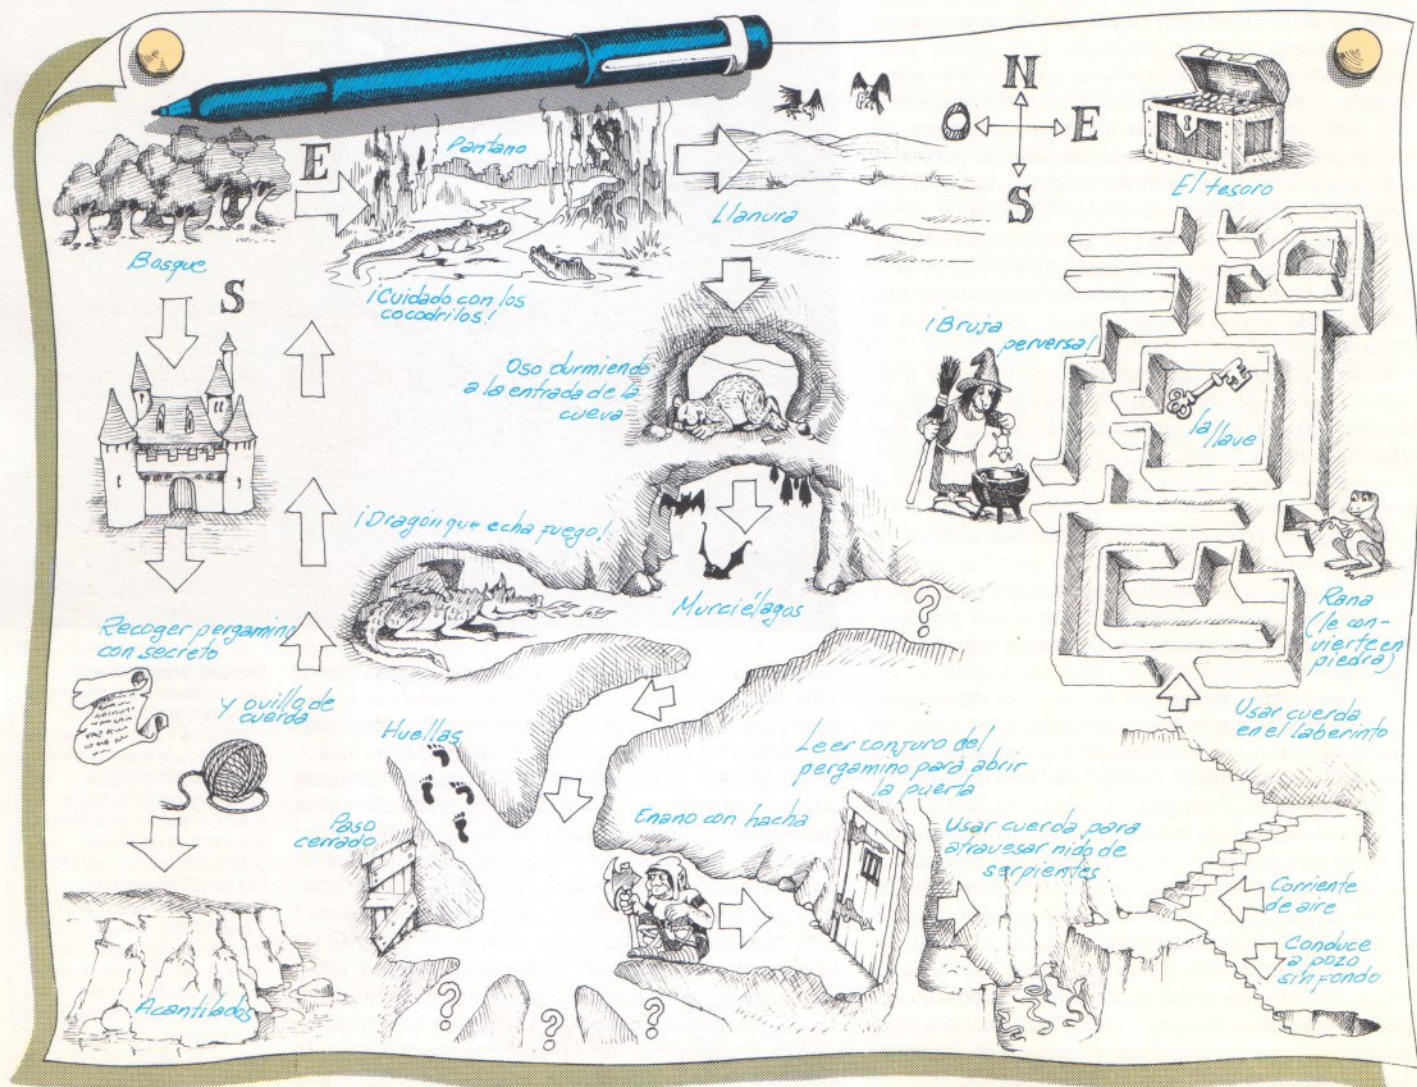 N
O
E
S
El tesoro
Pantano
E
Llanura
Bosque
S
¡Cuidado con los
cocodrilos!
Oso durmiendo
a la entrada de la
cueva
¡Bruja
perversa!
la
llave
¡Dragón que echa fuego!
Murciélagos
?
Rana
(le con-
vierte en
piedra)
Recoger pergamino
con secreto
y ovillo de
cuerda
Huellas
Usar cuerda
en el laberinto
Leer conjuro del
pergamino para abrir
la puerta
Paso
cerrado
Enano con hacha
Usar cuerda para
atravesar nido de
serpientes
Corriente
de aire
Conduce
a pozo
sin fondo
Acantilados
?
?
?